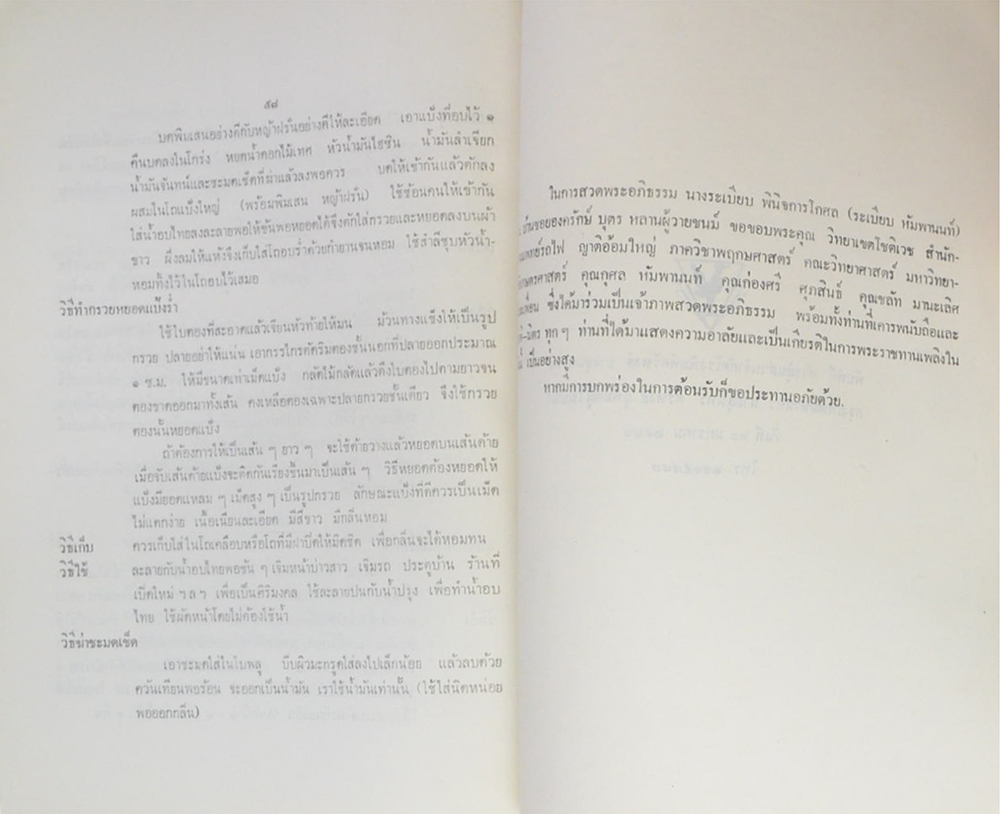 ๕๘
บดพิมเสนอย่างดีกับหญ้าฝรั่นอย่างดีให้ละเอียด เอาแป้งที่อบไว้ ๑
คืนบดลงในโกร่ง หยดน้ำดอกไม้เทศ หัวน้ำมันไฮซิน น้ำมันลำเจียก
น้ำมันจันทน์และชะมดเช็ดที่ฆ่าแล้วลงพอควร บดให้เข้ากันแล้วตักลง
ผสมในโถแป้งใหญ่ (พร้อมพิมเสน หญ้าฝรั่น) ใช้ช้อนคนให้เข้ากัน
ใส่น้ำอบไทยลงละลายพอให้ข้นพอหยอดได้จึงตักใส่กรวยและหยอดลงบนผ้า
ขาว ผึ่งลมให้แห้งจึงเก็บใส่โถอบร่ำด้วยกำยานจนหอม ใช้สำลีชุบหัวน้ำ-
หอมทิ้งไว้ในโถอบไว้เสมอ
วิธีทำกรวยหยอดแป้งร่ำ
ใช้ใบตองที่สะอาดแล้วเจียนหัวท้ายให้มน ม้วนทางแข็งให้เป็นรูป
กรวย ปลายอย่าให้แน่น เอากรรไกรตัดริมตองชั้นนอกที่ปลายออกประมาณ
๑ ซ.ม. ให้มีขนาดเท่าเม็ดแป้ง กลัดไม้กลัดแล้วดึงใบตองไปตามยาวจน
ตองขาดออกมาทั้งเส้น คงเหลือตองเฉพาะปลายกรวยชั้นเดียว จึงใช้กรวย
ตองนั้นหยอดแป้ง
ถ้าต้องการให้เป็นเส้น ๆ ยาว ๆ จะใช้ด้ายวางแล้วหยอดบนเส้นด้าย
เมื่อจับเส้นด้ายแป้งจะติดกันเรียงขึ้นมาเป็นเส้น ๆ วิธีหยอดต้องหยอดให้
แป้งมียอดแหลม ๆ เม็ดสูง ๆ เป็นรูปกรวย ลักษณะแป้งที่ดีควรเป็นเม็ด
ไม่แตกง่าย เนื้อเนียนละเอียด มีสีขาว มีกลิ่นหอม
วิธีเก็บ ควรเก็บใส่ในโถเคลือบหรือโถที่มีฝาปิดให้มิดชิด เพื่อกลิ่นจะได้หอมทน
วิธีใช้ ละลายกับน้ำอบไทยพอข้น ๆ เจิมหน้าบ่าวสาว เจิมรถ ประตูบ้าน ร้านที่
เปิดใหม่ ฯลฯ เพื่อเป็นศิริมงคล ใช้ละลายปนกับน้ำปรุง เพื่อทำน้ำอบ
ไทย ใช้ผัดหน้าโดยไม่ต้องใช้น้ำ
วิธีฆ่าชะมดเช็ด
เอาชะมดใส่ในใบพลู บีบผิวมะกรูดใส่ลงไปเล็กน้อย แล้วลนด้วย
ควันเทียนพอร้อน จะออกเป็นน้ำมัน เราใช้น้ำมันเท่านั้น (ใช้ใส่นิดหน่อย
พอออกกลิ่น)
ในการสวดพระอภิธรรม นางระเบียบ พินิจการโกศล (ระเบียบ หัมพานนท์)
บุตร หลานผู้วายชนม์ ขอขอบพระคุณ วิทยาเขตโชติเวช สำนัก-
แพทย์รถไฟ ญาติอ้อมใหญ่ ภาควิชาพฤกษศาสตร์ คณะวิทยาศาสตร์ มหาวิทยา-
เกษตรศาสตร์ คุณกุศล หัมพานนท์ คุณก่องศรี ศุภสินธุ์ คุณชลัท มานะเลิศ
ซึ่งได้มาร่วมเป็นเจ้าภาพสวดพระอภิธรรม พร้อมทั้งท่านที่เคารพนับถือและ
มิตร ทุก ๆ ท่านที่ได้มาแสดงความอาลัยและเป็นเกียรติในการพระราชทานเพลิงใน
เป็นอย่างสูง
หากมีการบกพร่องในการต้อนรับก็ขอประทานอภัยด้วย.